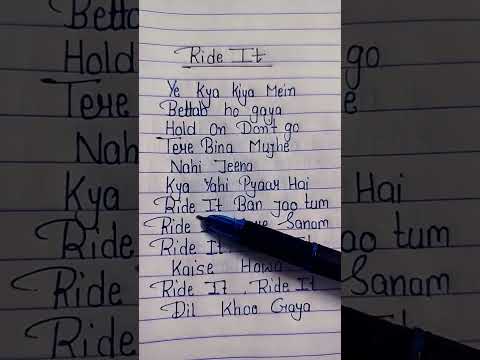 Ride It
Ye Kya Kiya Mein
Bettab ho gaya
Hold On Don't go
Tere Bina Mujhe
Nahi Jeena
Kya Yahi Pyaar Hai
Ride It Ban Jao tum
Ride Sanam
Ride It
Kaise
Ride It, Ride It
Dil Khoo Gaya